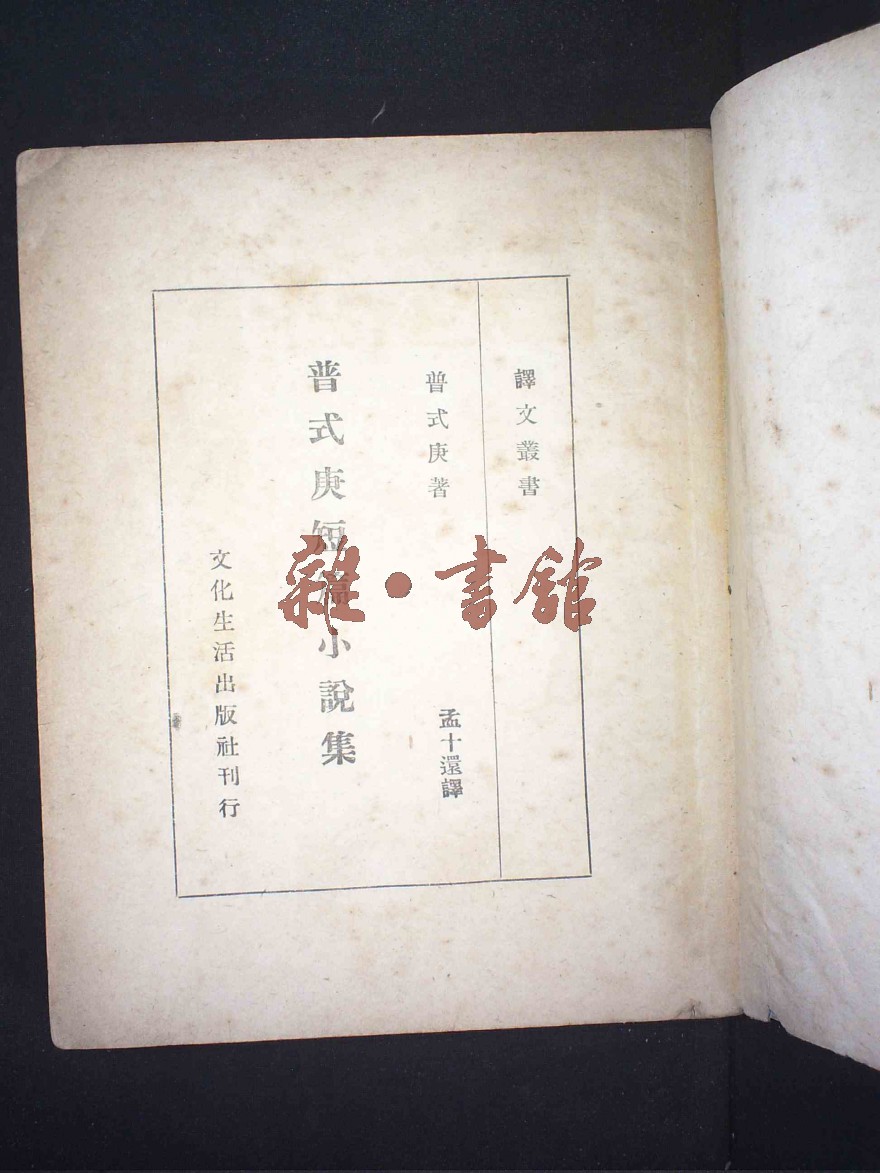 譯文叢書
普式庚著
孟十還譯
普式庚短篇小說集
文化生活出版社刊行
雜•書館